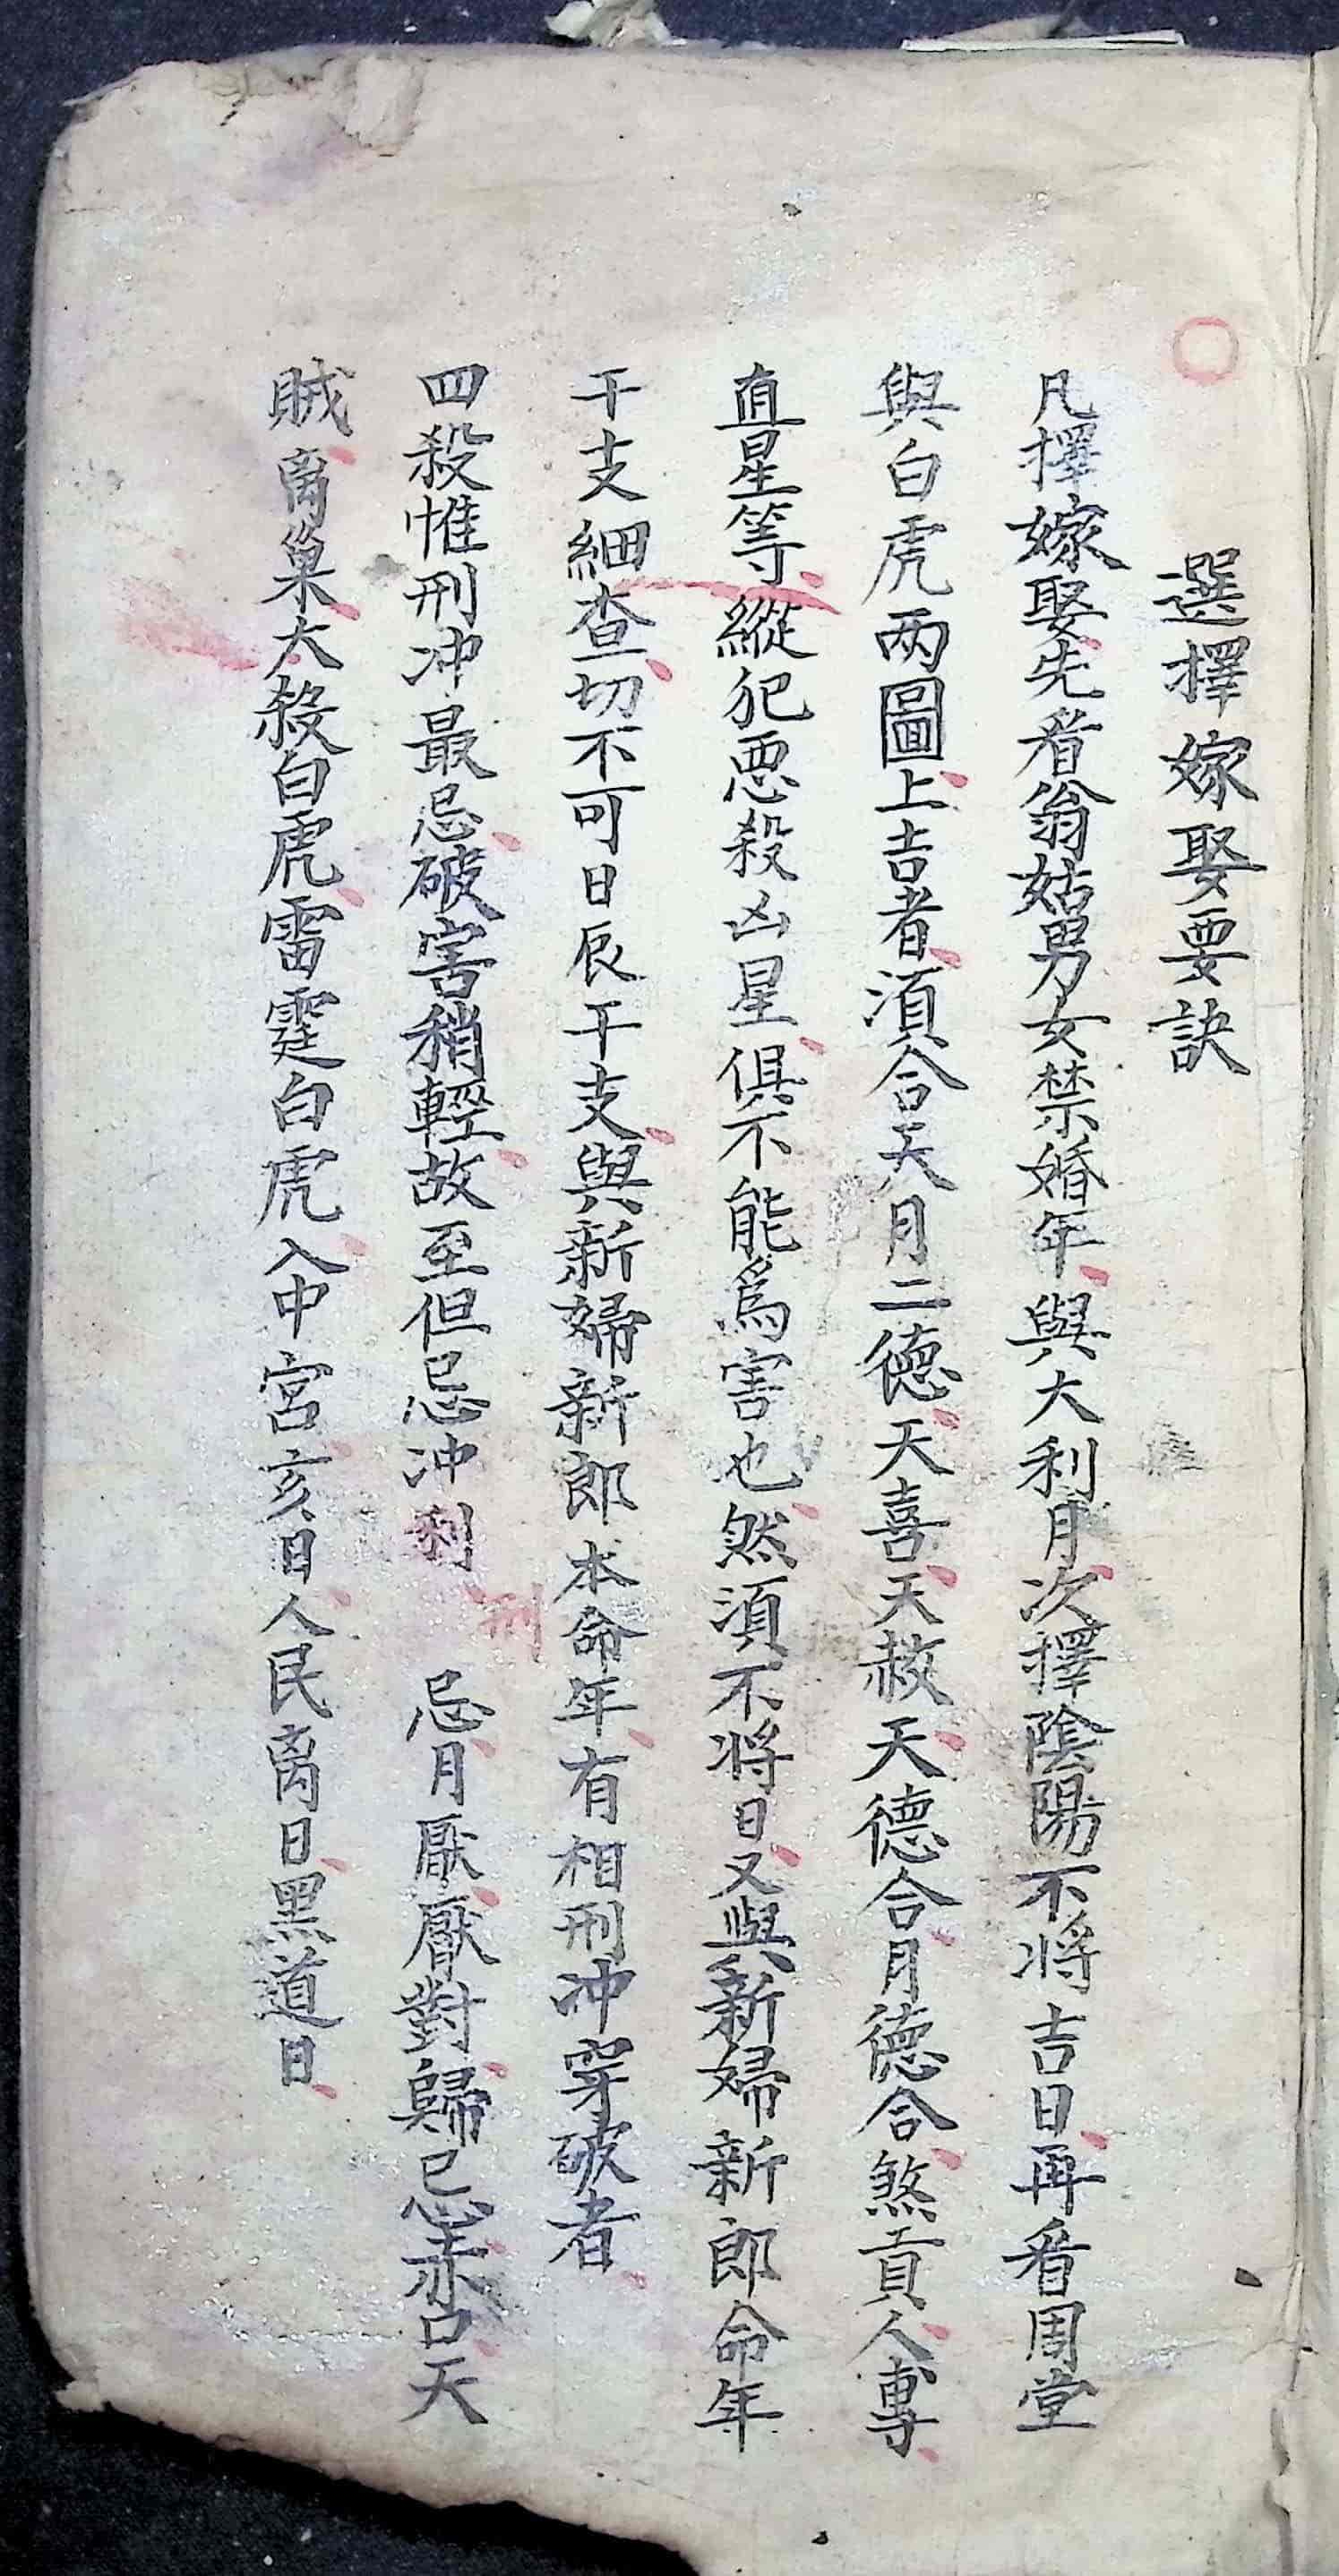 選擇嫁娶要訣
凡擇嫁娶先看翁姑男女禁婚年與大利月次擇陰陽不將吉日再看周堂
與白虎両圖上吉者須合天月二德天喜天赦天德合月德合煞貢人專
直星等縱犯恶殺凶星俱不能爲害也然須不將日又與新婦新郎命年
干支細查切不可日辰干支與新婦新郎本命年有相刑冲穿破者
四殺惟刑冲最忌破害稍輕故至但忌冲利
刑
忌月厭厭對歸忌赤口天
賊离巢大殺白虎雷霆白虎入中宮亥日人民离日黑道日